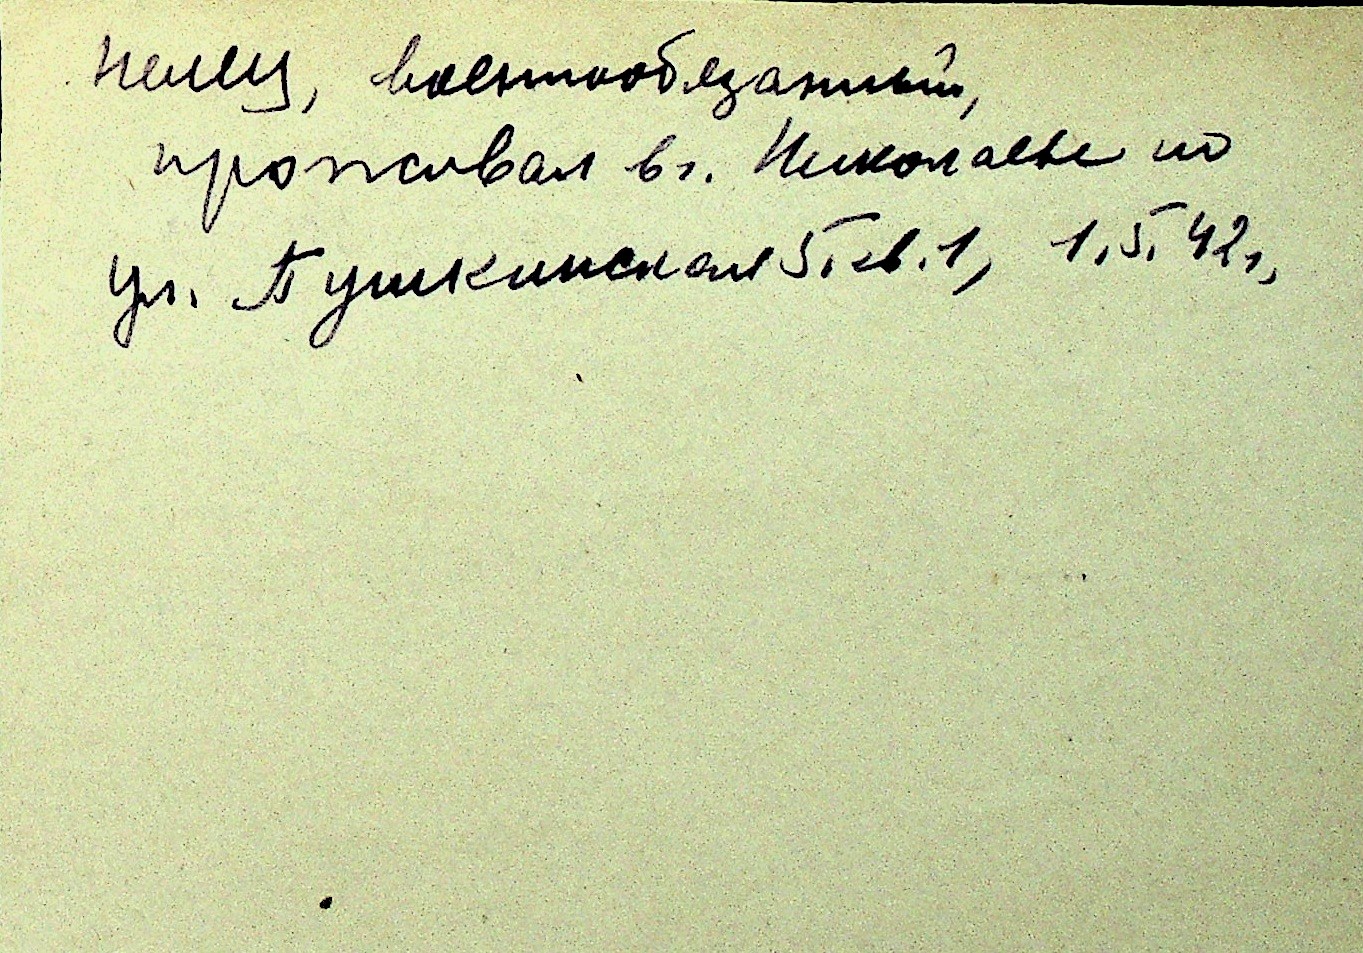 немец, военнообязанный,
проживал в г. Николаеве по
ул. Пушкинская 5. кв. 1, 1.5.42г,